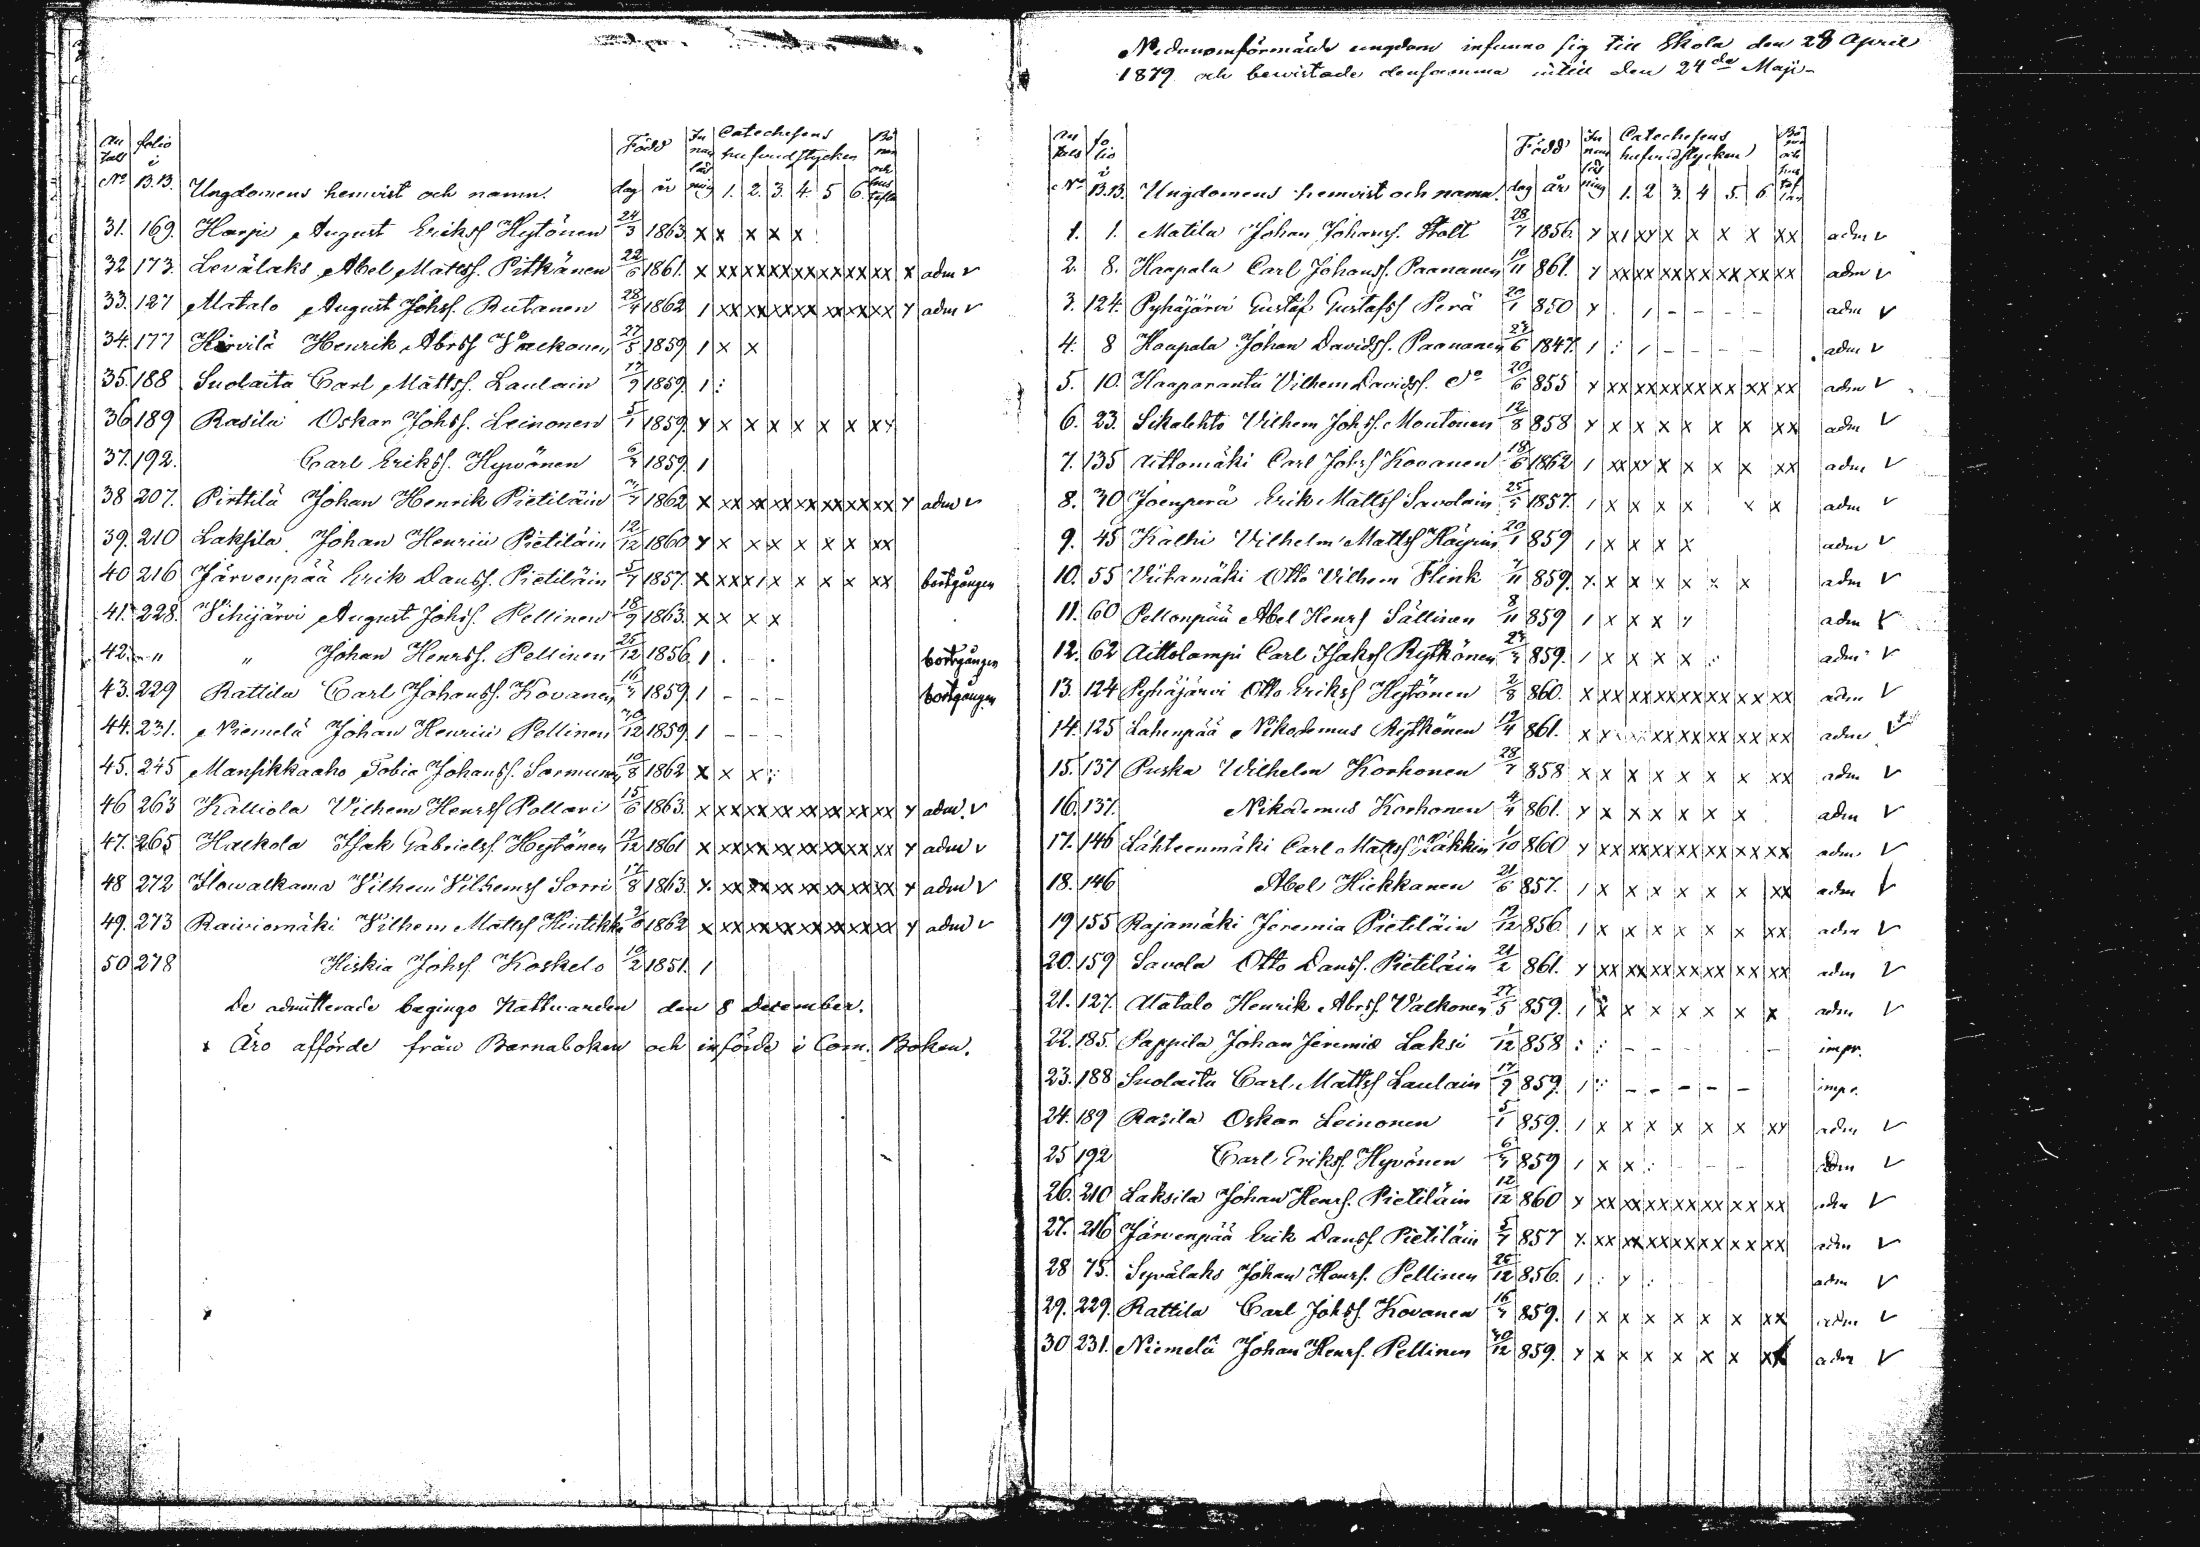 Antals No folio i B.B. Ungdomens hemvist och namn. Född dag år Innanläsning Catecheseus hufvudstycken 1. 2. 3. 4. 5 6. Bönen och hustafla
31. 169. Harju August Erikss Hytönen 24/3 1863. x x x x x
32 173. Levälaks Abel Mattss. Pitkänen 22/6 1861. x xx xx xx xx xx xx xx x adm v
33. 127 Alatalo August Johss. Rutanen 1862 1 xx xx xx xx xx xx xx y adm v
34. 177 Hirvilä Henrik Abrss Walkonen 27/5 1859 1 x x
35. 188 Suolaita Carl Mattss. Laulain 17/9 1859. 1 :
36 189 Rasila Oskar Johss. Leinonen 5/1 1859. y x x x x x x x y
37. 192. Carl Erikss. Hywönen 1859 1
38 207. Pirttilä Johan Henrik Pietiläin 1862 x xx xx xx xx xx xx xx y adm v
39. 210 Laksila Johan Henriss Pietiläin 12/12 1860 y x x x x x x xx
40 216 Järvenpää Erik Danss. Pietiläin 5/7 1857. x xx x1 x x x x xx bortgången
41. 228. Vihijärvi August Johss. Pellinen 18/9 1863. x x x x
42. " " Johan Henrss. Pellinen 1856. 1 . - . bortgången
43. 229 Rattila Carl Johanss. Kovanen 1859. 1 - - - bortgången
44. 231. Niemelä Johan Henriss Pellinen 30/12 1859. 1 - - -
45. 245 Mansikkaaho Tobia Johanss. Sormunen 10/8 1862 x x x :
46 263 Kalliola Vilhem Henrss Pollari 15/6 1863. x xx xx xx xx xx xx xx y adm. v
47. 265 Halkola Isak Gabrielss. Hytönen 12/12 1861 x xx xx xx xx xx xx xx y adm v
48 272 Ilowalkama Vilhem Vilhemss Sorri 17/8 1863. y. xx xx xx xx xx xx xx y adm v
49. 273 Raiviomäki Vilhem Mattss Hintikka 1862 x xx xx xx xx xx xx xx y adm v
50 278 Hiskia Johss Koskelo 10/2 1851. 1
De admitterade begingo Nattwarden den 8 December.
Äro afförde från Barnaboken och införde i Com. Boken.
Nedanomförmälde ungdom infunno sig till Skola den 28 April
1879 och bewistade densamma intill den 24de Maji-
Antals No folio i B.B. Ungdomens hemvist och namn. Född dag år Innanläsning Catecheseus hufvudstycken 1. 2 3. 4 5. 6 Bönen och hustaflan
1. 1. Matila Johan Johanss. Stolt 28/7 1856. y x1 xy x x x x xx adm v
2. 8. Haapala Carl Johanss. Paananen 10/11 861. y xx xx xx xx xx xx xx adm v
3. 124. Pyhäjärvi Gustaf Gustafss Perä 20/1 850 y . , - - - - adm v
4. 8 Haapala Johan Davidss. Paananen 1847. 1 : 1 - - - - adm v
5. 10. Haaparanta Vilhem Davidss. Do 20/6 855 y xx xx xx xx xx xx xx adm v
6. 23. Sikalehto Vilhem Johss. Moutonen 12/8 858 y x x x x x x xx adm v
7. 135 Aittomäki Carl Johss Kovanen 18/6 1862 1 xx xy x x x x xx adm v
8. 30 Joenperä Erik Mattss Savolain 1857. 1 x x x x x x adm v
9. 45 Kalhi Vilhelm Mattss Häyrin 20/1 859 1 x x x x adm v
10. 55 Viitamäki Otto Vilhem Flink 859. y. x x x x x x adm v
11. 60 Pellonpää Abel Henrss Sällinen 8/11 859 1 x x x y adm v
12. 62 Aittolampi Carl Isakss Rytkönen 859. 1 x x x x : adm v
13. 124 Pyhäjärvi Otto Erikss Hytönen 2/8 860. x xx xx xx xx xx xx xx adm v
14. 125 Lahenpää Nikodemus Rytkönen 861. x x xx xx xx xx xx adm v
15. 137 Puska Wilhelm Korhonen 858 x x x x x x x xx adm v
16. 137. Nikodemus Korhonen 4/4 861. y x x x x x x adm v
17. 146 Lähteenmäki Carl Mattss 1/10 860 y xx xx xx xx xx xx xx adm v
18. 146 Abel Hiekkanen 21/6 857. 1 x x x x x x xx adm v
19 155 Rajamäki Jeremia Pietiläin 856. 1 x x x x x x xx adm v
20. 159 Savola Otto Danss. Pietiläin 21/2 861. y xx xx xx xx xx xx xx adm v
21. 127. Alatalo Henrik Abrss. Valkonen 27/5 859. 1 x x x x x x x adm v
22. 185. Pappila Johan Jeremiæ Laksi 1/12 858 : : - - - impr.
23. 188 Suolaita Carl Mattss Laulain 17/9 859. 1 : - - - - - impr.
24. 189 Rasila Oskar Leinonen 5/1 859. 1 x x x x x x xy adm v
25 192 Carl Erikss. Hyvönen 859 1 x x : - - - adm v
26. 210 Laksila Johan Henrss. Pietiläin 12/12 860 y xx xx xx xx xx xx xx adm v
27. 216 Järvenpää Erik Danss. Pietiläin 5/7 857 y. xx xx xx xx xx xx xx adm v
28 75. Syvälaks Johan Henrss. Pellinen 856. 1 : y : adm v
29. 229. Rattila Carl Johss. Kovanen 859. 1 x x x x x x xx adm v
30 231. Niemelä Johan Henrss. Pellinen 30/12 859. y x x x x x x xx adm v